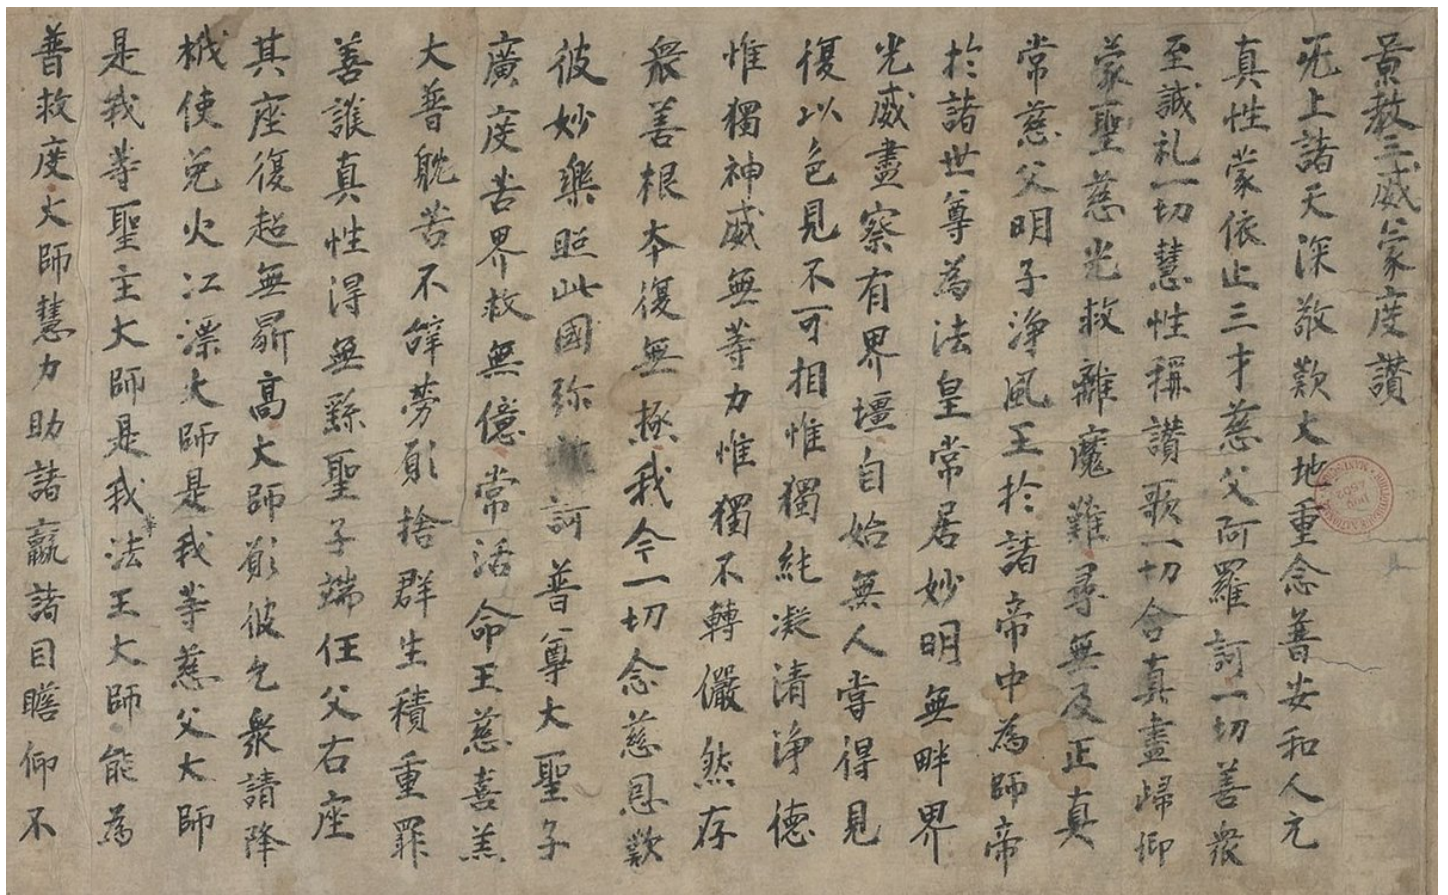 景教三威蒙度讚
旡上諸天深敬歎大地重念普安和人元
真性蒙依止三才慈父阿羅訶一切善衆
至誠礼一切慧性稱讚歌一切含真盡歸仰
蒙聖慈光救離魔難尋無及正真
常慈父明子浄風王扵諸帝中為師帝
扵諸世尊為法皇常居妙明無畔界
光威盡察有界壃自始無人嘗得見
復以色見不可相惟獨純凝清浄德
惟獨神威無等力惟獨不轉儼然存
衆善根本復無極我今一切念慈恩歎
彼妙樂照此國弥訶普尊大聖子
廣度苦界救無億常活命王慈喜羔
大普躭苦不辝勞願捨群生積重罪
善護真性得無繇聖子端任父右座
其座復超無鼎高大師願彼乞衆請降
栰使免火江漂大師是我等慈父大師
是我等聖主大師是我等法王大師能為
普救度大師慧力助諸羸諸目瞻仰不